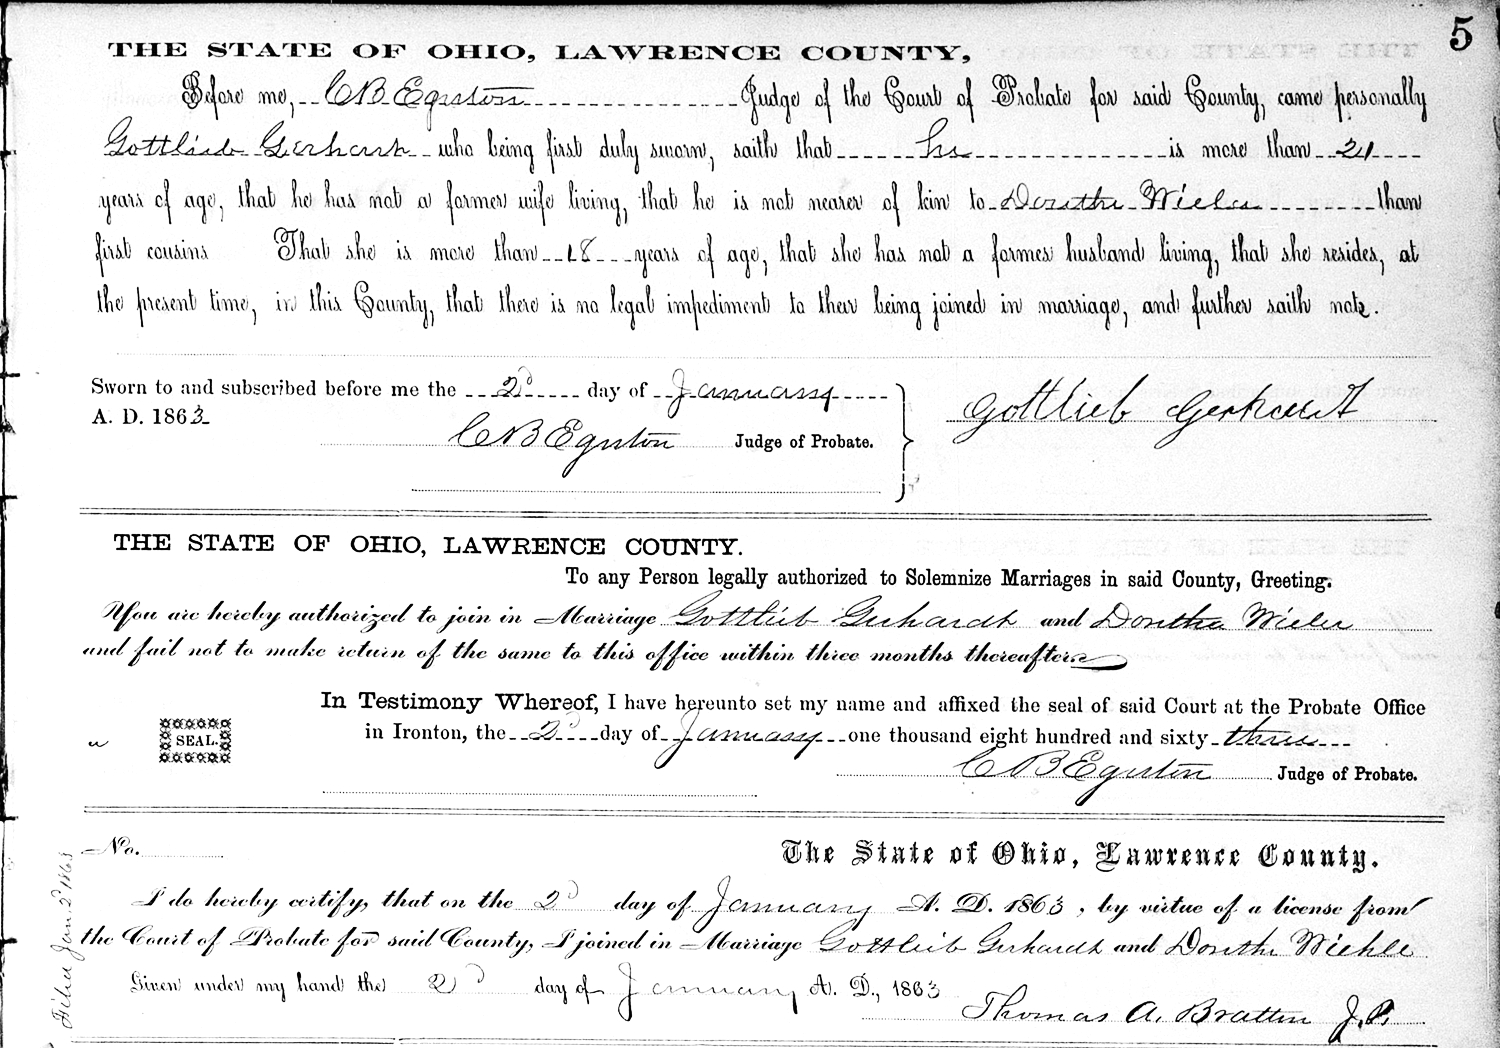 5
THE STATE OF OHIO, LAWRENCE COUNTY,
Before me, C B Egerton Judge of the Court of Probate for said County, came personally
Gottlieb Gerhart who being first duly sworn, saith that he is more than 21
years of age, that he has not a former wife living, that he is not nearer of kin to Dorothe Wieler than
first cousins That she is more than 18 years of age, that she has not a former husband living, that she resides, at
the present time, in this County, that there is no legal impediment to their being joined in marriage, and further saith not.
Sworn to and subscribed before me the 2d day of January
A. D. 1863 Gottlieb Gerhardt
C B Egerton Judge of Probate.
THE STATE OF OHIO, LAWRENCE COUNTY.
To any Person legally authorized to Solemnize Marriages in said County, Greeting:
You are hereby authorized to join in Marriage Gottlieb Gerhardt and Dorothea Wieler
and fail not to make return of the same to this office within three months thereafter.
In Testimony Whereof, I have hereunto set my name and affixed the seal of said Court at the Probate Office
SEAL. in Ironton, the 2d day of January one thousand eight hundred and sixty three
C B Egerton Judge of Probate.
No.
The State of Ohio, Lawrence County.
I do hereby certify, that on the 2d day of January A. D. 1863, by virtue of a license from
the Court of Probate for said County, I joined in Marriage Gottlieb Gerhardt and Dorothe Wiehle
Given under my hand the 2d day of January A. D., 1863
Thomas A. Bratten J. P.
Filed Jan 2d 1863